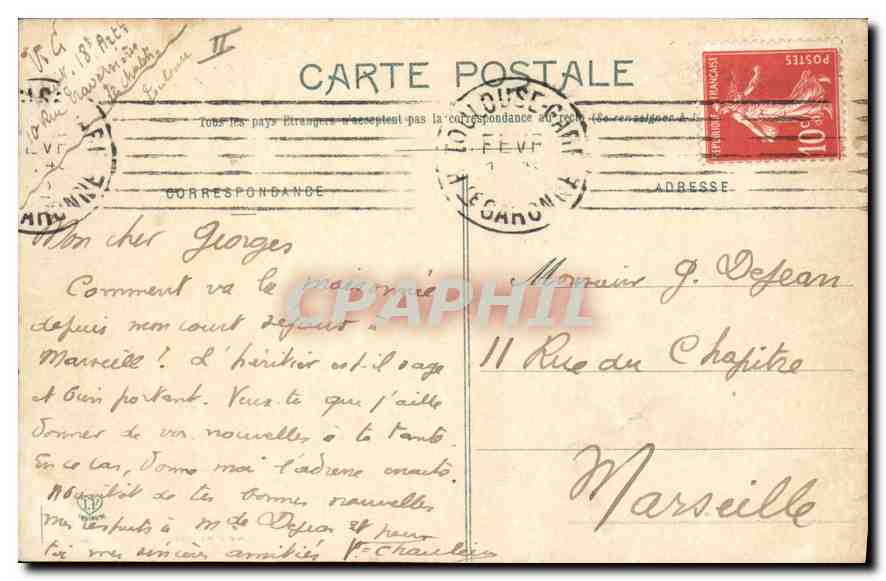 V. C
18e Arti
10 Rue Traversière
Toulouse
II
CARTE POSTALE
Tous les pays Étrangers n'acceptent pas la correspondance au recto (Se renseigner à la
CORRESPONDANCE
ADRESSE
TOULOUSE-GARE
FEVR
HTE GARONNE
POSTES
REPUBLIQUE FRANÇAISE
10c
Mon cher Georges
Comment va la maisonnée
depuis mon court séjour à
Marseille! L'héritier est-il sage
et bien portant. Veux-tu que j'aille
donner de vos nouvelles à ta tante.
En ce cas, donne moi l'adresse exacte.
Aussitôt de tes bonnes nouvelles
mes respects à Mme Dejean et pour
toi mes sincères amitiés
Monsieur G. DeJean
11 Rue du Chapitre
Marseille
CPAPHIL